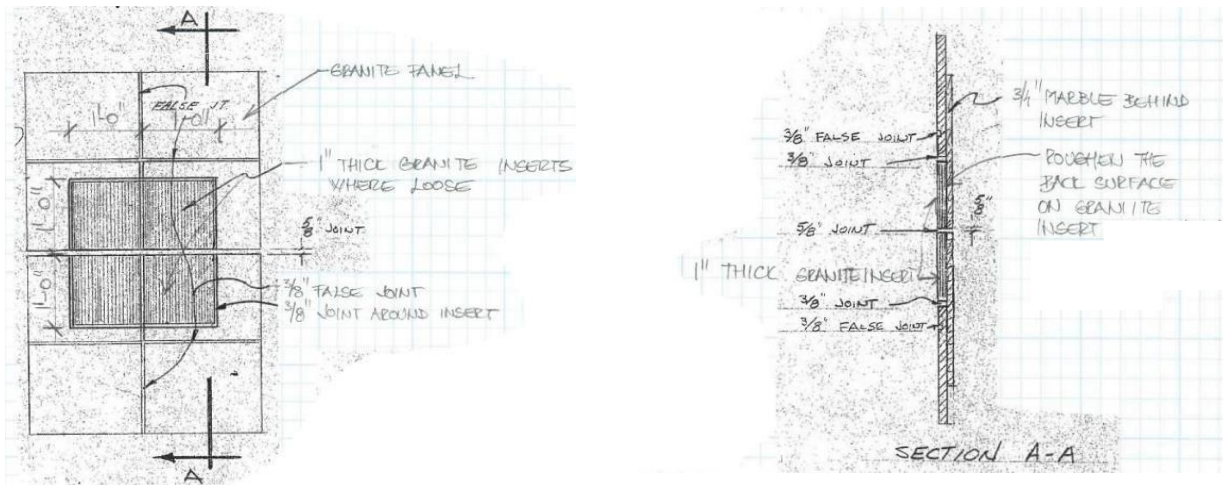 A
GRANITE PANEL
FALSE JT.
1'-0" 1'-0"
1" THICK GRANITE INSERTS
WHERE LOOSE
1'-0"
5/8" JOINT
1'-0"
3/8" FALSE JOINT
3/8" JOINT AROUND INSERT
A
3/4" MARBLE BEHIND
INSERT
3/8" FALSE JOINT
3/8" JOINT
ROUGHEN THE
BACK SURFACE
ON GRANITE
INSERT
5/8"
5/8" JOINT
1" THICK GRANITE INSERT
3/8" JOINT
3/8" FALSE JOINT
SECTION A-A